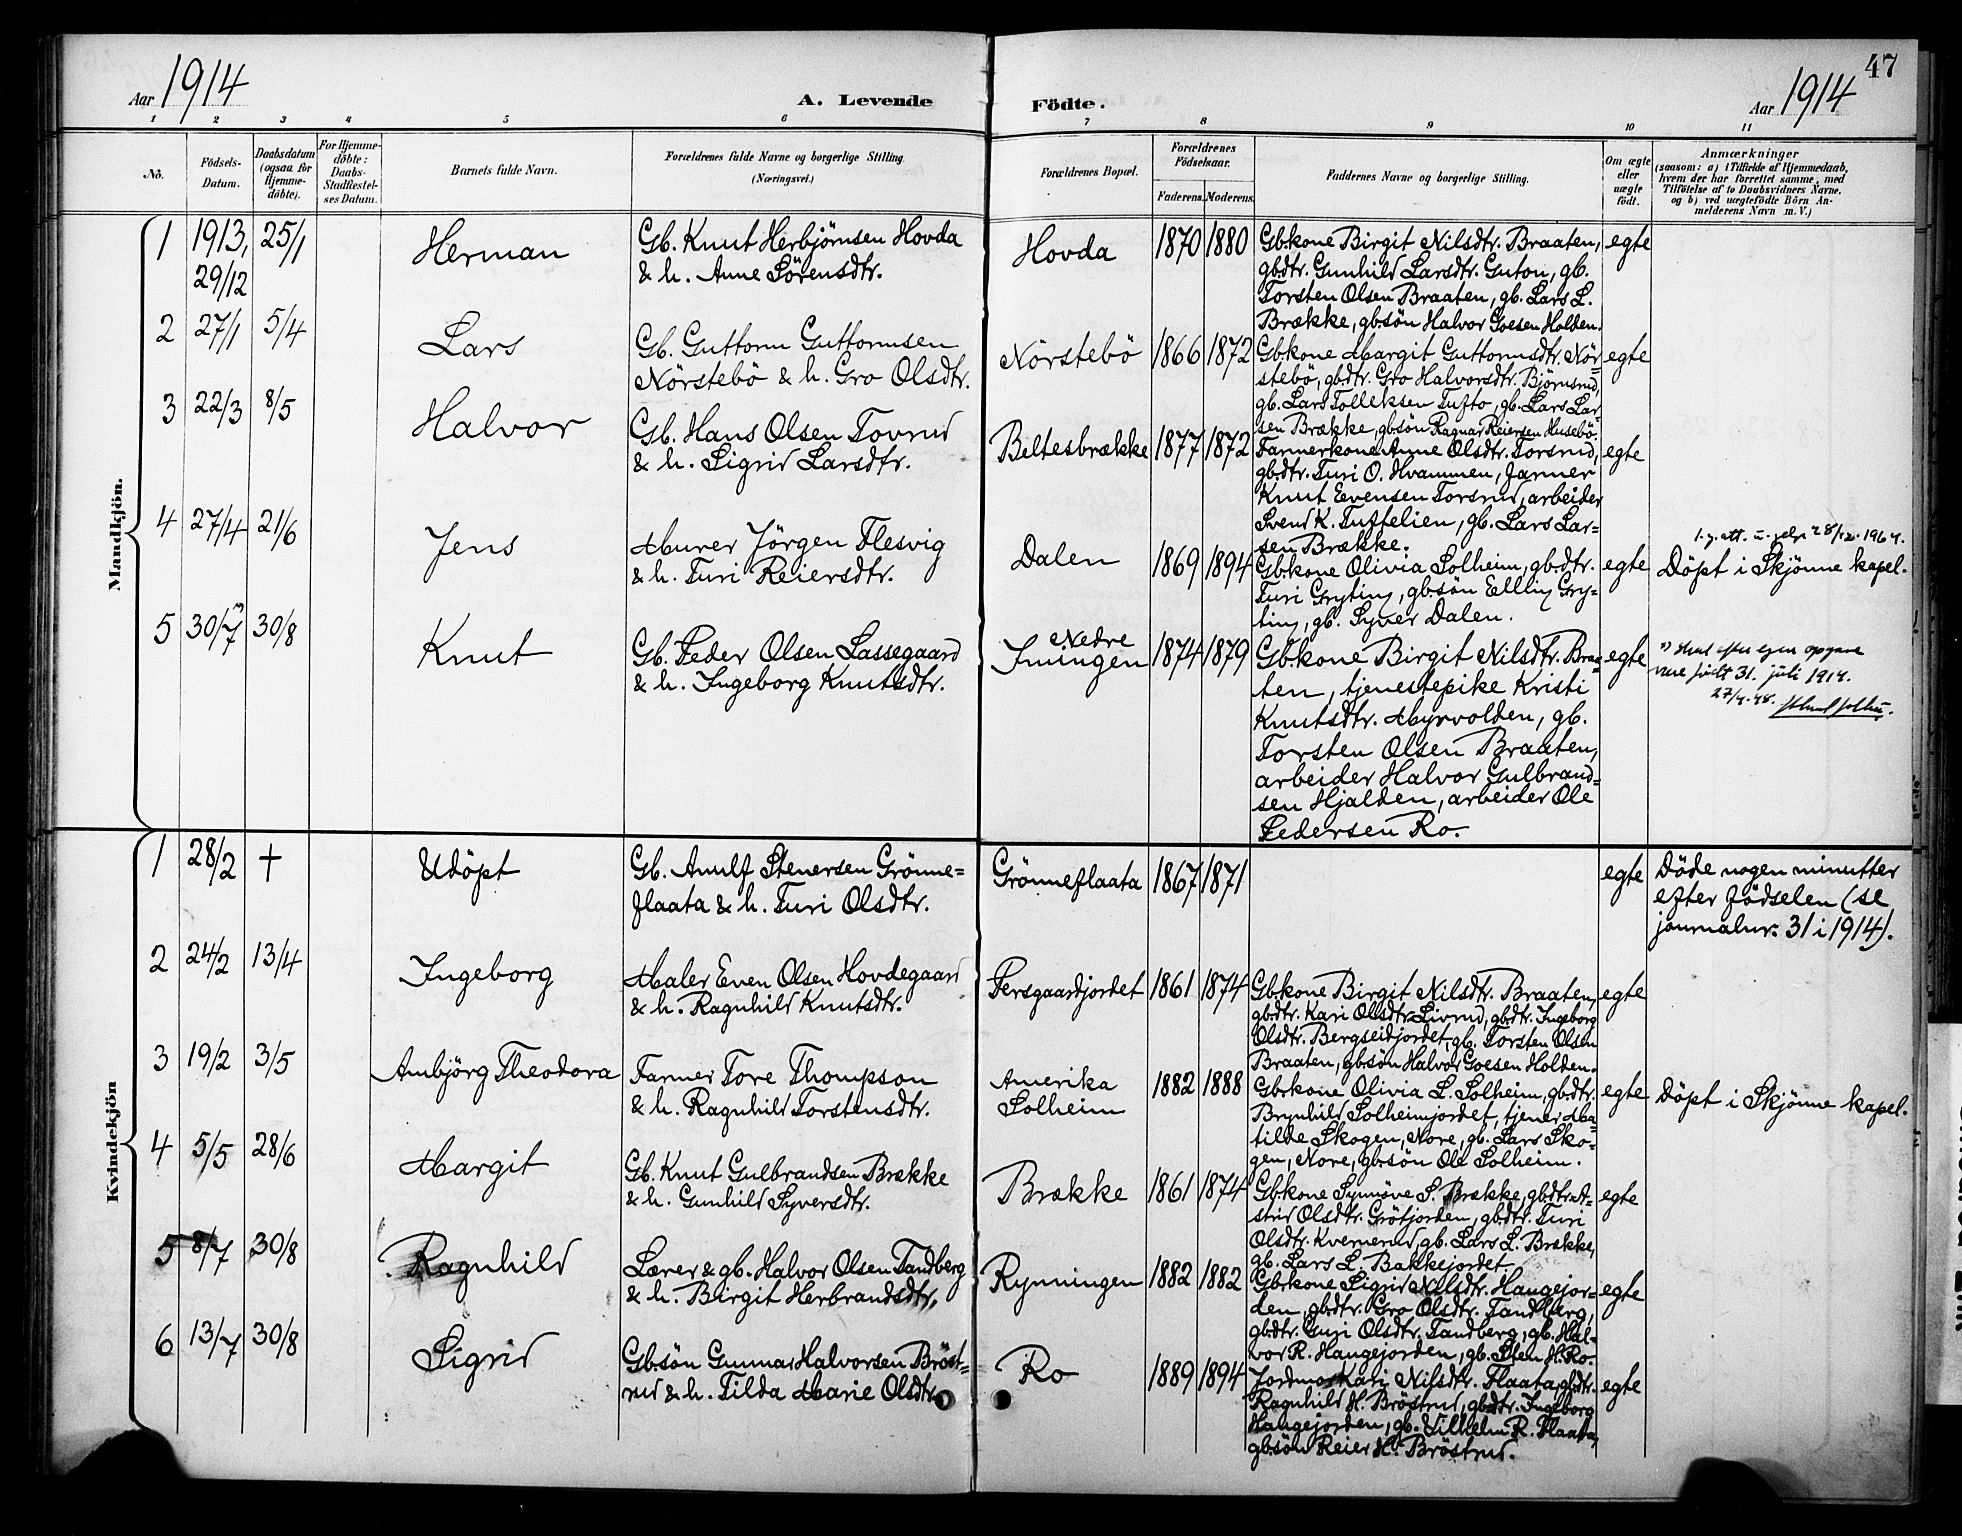 47
Aar 1914
A. Levende
Födte.
Aar 1914
1 2 3 4 5 6 7 8 9 10 11
No.
Födsels-
Datum.
Daabsdatum
(ogsaa for
Hjemme-
döbte).
For Hjemme-
döbte:
Daabs-
Stadfæstel-
ses Datum.
Barnets fulde Navn.
Forældrenes fulde Navne og borgerlige Stilling.
(Næringsvei.)
Forældrenes Bopæl.
Forældrenes
Födselsaar.
Faderens. Moderens.
Faddernes Navne og borgerlige Stilling.
Om ægte
eller
uægte
födt.
Anmærkninger
(saasom: a) i Tilfælde af Hjemmedaab,
hvem der har forrettet samme, med
Tilföielse af to Daabsvidners Navne.
og b) ved uægtefödte Börn An-
melderens Navn m. V.)
Mandkjön.
1
1913,
29/12
25/1
Herman
Gb. Knut Herbjörnsen Hovda
& h. Anne Sörensdtr.
Hovda
1870
1880
Gbkone Birgit Nilsdtr. Braaten,
gbdtr. Gunhild Larsdtr. Guton, gb.
Torsten Olsen Braaten, gb. Lars L.
Brække, gbsön Halvor Goesen Holden.
egte
2
27/1
5/4
Lars
Gb. Guttorm Guttormsen
Nörstebö & h. Gro Olsdtr.
Nörstebö
1866
1872
Gbkone Margit Guttormsdtr. Nör=
stebö, gbdtr. Gro Halvorsdtr. Björnsrud,
gb. Lars Tolleksen Tufto, gb. Lars Lar=
sen Brække, gbsön Ragnar Reiersen Husebö.
egte
3
22/3
8/5
Halvor
Gb. Hans Olsen Tovrud
& h. Sigrid Larsdtr.
Beltesbrække
1877
1872
Farmerkone Anne Olsdtr. Torsrud,
gbdtr. Turi O. Hvammen, farmer
Knut Evensen Torsrud, arbeider
Svend K. Tuftelien, gb. Lars Lar=
sen Brække.
egte
4
27/4
21/6
Jens
Murer Jörgen Flesvig
& h. Turi Reiersdtr.
Dalen
1869
1894
Gbkone Olivia Solheim, gbdtr.
Turi Gryting, gbsön Elling Gry=
ting, gb. Syver Dalen.
egte
28/12.1964.
Döpt i Skjönne kapel.
5
30/7 ")
30/8
Knut
Gb. Peder Olsen Lassegaard
& h. Ingeborg Knutsdtr.
Nedre
Imingen
1874
1879
Gbkone Birgit Nilsdtr. Braa=
ten, tjenestepike Kristi
Knutsdtr. Myrvolden, gb.
Torsten Olsen Braaten,
arbeider Halvor Gulbrand=
sen Hjalden, arbeider Ole
Pedersen Ro.
egte
") Skal efter egen opgave
være født 31. juli 1914.
27/4.48.
Kvindekjön
1
28/2
+
Udöpt
Gb. Arnulf Stenersen Grönne=
flaata & h. Turi Olsdtr.
Grönneflaata
1867
1871
egte
Döde nogen minutter
efter födselen (se
journalnr. 31 i 1914).
2
24/2
13/4
Ingeborg
Maler Even Olsen Hovdegaard
& h. Ragnhild Knutsdtr.
Persgaardjordet
1861
1874
Gbkone Birgit Nilsdtr. Braaten,
gbdtr. Kari Olsdtr. Livrud, gbdtr. Ingeborg
Olsdtr. Bergseidjordet, gb. Torsten Olsen
Braaten, gbsön Halvor Goesen Holden.
egte
3
19/2
3/5
Ambjörg Theodora
Farmer Tore Thompson
& h. Ragnhild Torstensdtr.
Amerika
Solheim
1882
1888
Gbkone Olivia L. Solheim, gbdtr.
Brynhild Solheimjordet, tjener Ma=
tilde Skogen, Nore, gb. Lars Sko=
gen, Nore, gbsön Ole Solheim.
egte
Döpt i Skjönne kapel.
4
5/5
28/6
Margit
Gb. Knut Gulbrandsen Brække
& h. Gunhild Syversdtr.
Brække
1861
1874
Gbkone Synnöve S. Brække, gbdtr. A=
strid Olsdtr. Grötjorden, gbdtr. Turi
Olsdtr. Kvernerud, gb. Lars L. Brække,
gb. Lars L. Bakkejordet.
egte
5
8/7
30/8
Ragnhild
Lærer & gb. Halvor Olsen Tandberg
& h. Birgit Herbrandsdtr.
Rynningen
1882
1882
Gbkone Sigrid Nilsdtr. Haugejor=
den, gbdtr. Gro Olsdtr. Tandberg,
gbdtr. Guri Olsdtr. Tandberg, gb. Hal=
vor R. Haugejorden, gb. Sten H. Ro.
egte
6
13/7
30/8
Sigrid
Gbsön Gunnar Halvorsen Bröst=
rud & h. Tilda Marie Olsdtr.
Ro
1889
1894
Jordmor Kari Nilsdtr. Flaata, gbdtr.
Ragnhild H. Bröstrud, gbdtr. Ingeborg
Haugejorden, gb. Vilhelm R. Flaata,
gbsön Reier H. Bröstrud.
egte